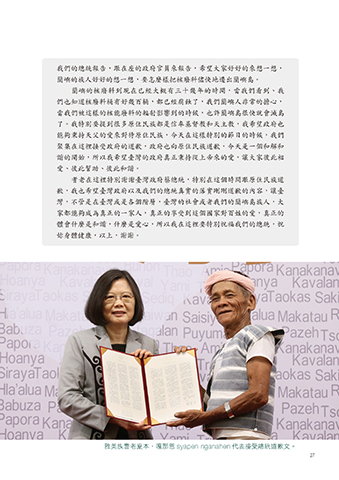 我們的總統報告，跟在座的政府官員來報告，希望大家好好的來想一想，
蘭嶼的族人好好的想一想，要怎麼樣把核廢料儘快地遷出蘭嶼島。
蘭嶼的核廢料到現在已經大概有三十幾年的時間，當我們看到、我
們也知道核廢料桶有好幾百桶，都已經腐蝕了，我們蘭嶼人非常的擔心，
當我們被這樣的核能廢料的輻射影響到的時候，也許蘭嶼島很快就會滅島
了。我特別要提到很多原住民族都是信奉基督教和天主教，我希望政府也
能夠秉持天父的愛來對待原住民族，今天在這樣特別的節日的時候，我們
聚集在這裡接受政府的道歉，政府也向原住民族道歉，今天是一個和解和
諧的開始，所以我希望臺灣的政府真正秉持從上帝來的愛，讓大家彼此相
愛、彼此幫助、彼此和諧。
耆老在這裡特別謝謝臺灣政府蔡總統，特別在這個時間跟原住民族道
歉，我也希望臺灣政府以及我們的總統真實的落實剛剛道歉的內容，讓臺
灣，不管是在臺灣或是各個階層，臺灣的社會或者我們的蘭嶼島族人，大
家都能夠成為真正的一家人，真正的享受到這個國家對百姓的愛，真正的
體會什麼是和諧，什麼是愛心，所以我在這裡要特別祝福我們的總統，祝
妳身體健康，以上，謝謝。
Papora
Kanakanavu
Kavalan
Taokas
Sakizaya
Puyuma
Pazeh
Hoanya
Siraya
Taokas
Hla'alua
Makatao
Babuza
Papora
Hoanya
雅美族耆老夏本．嘎那恩 syapen nganahen 代表接受總統道歉文。
27